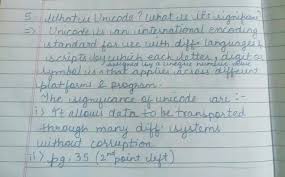 5 What is Unicode? What is its significance
⇒ Unicode is an international encoding
standard for use with diff languages &
scripts by which each letter, digit or
assigned by a unique numeric value
symbol is that applies across different
platforms & program.
The significance of unicode are :-
i) It allows data to be transported
through many diff systems
without corruption
ii) pg: 35 (2nd point left)